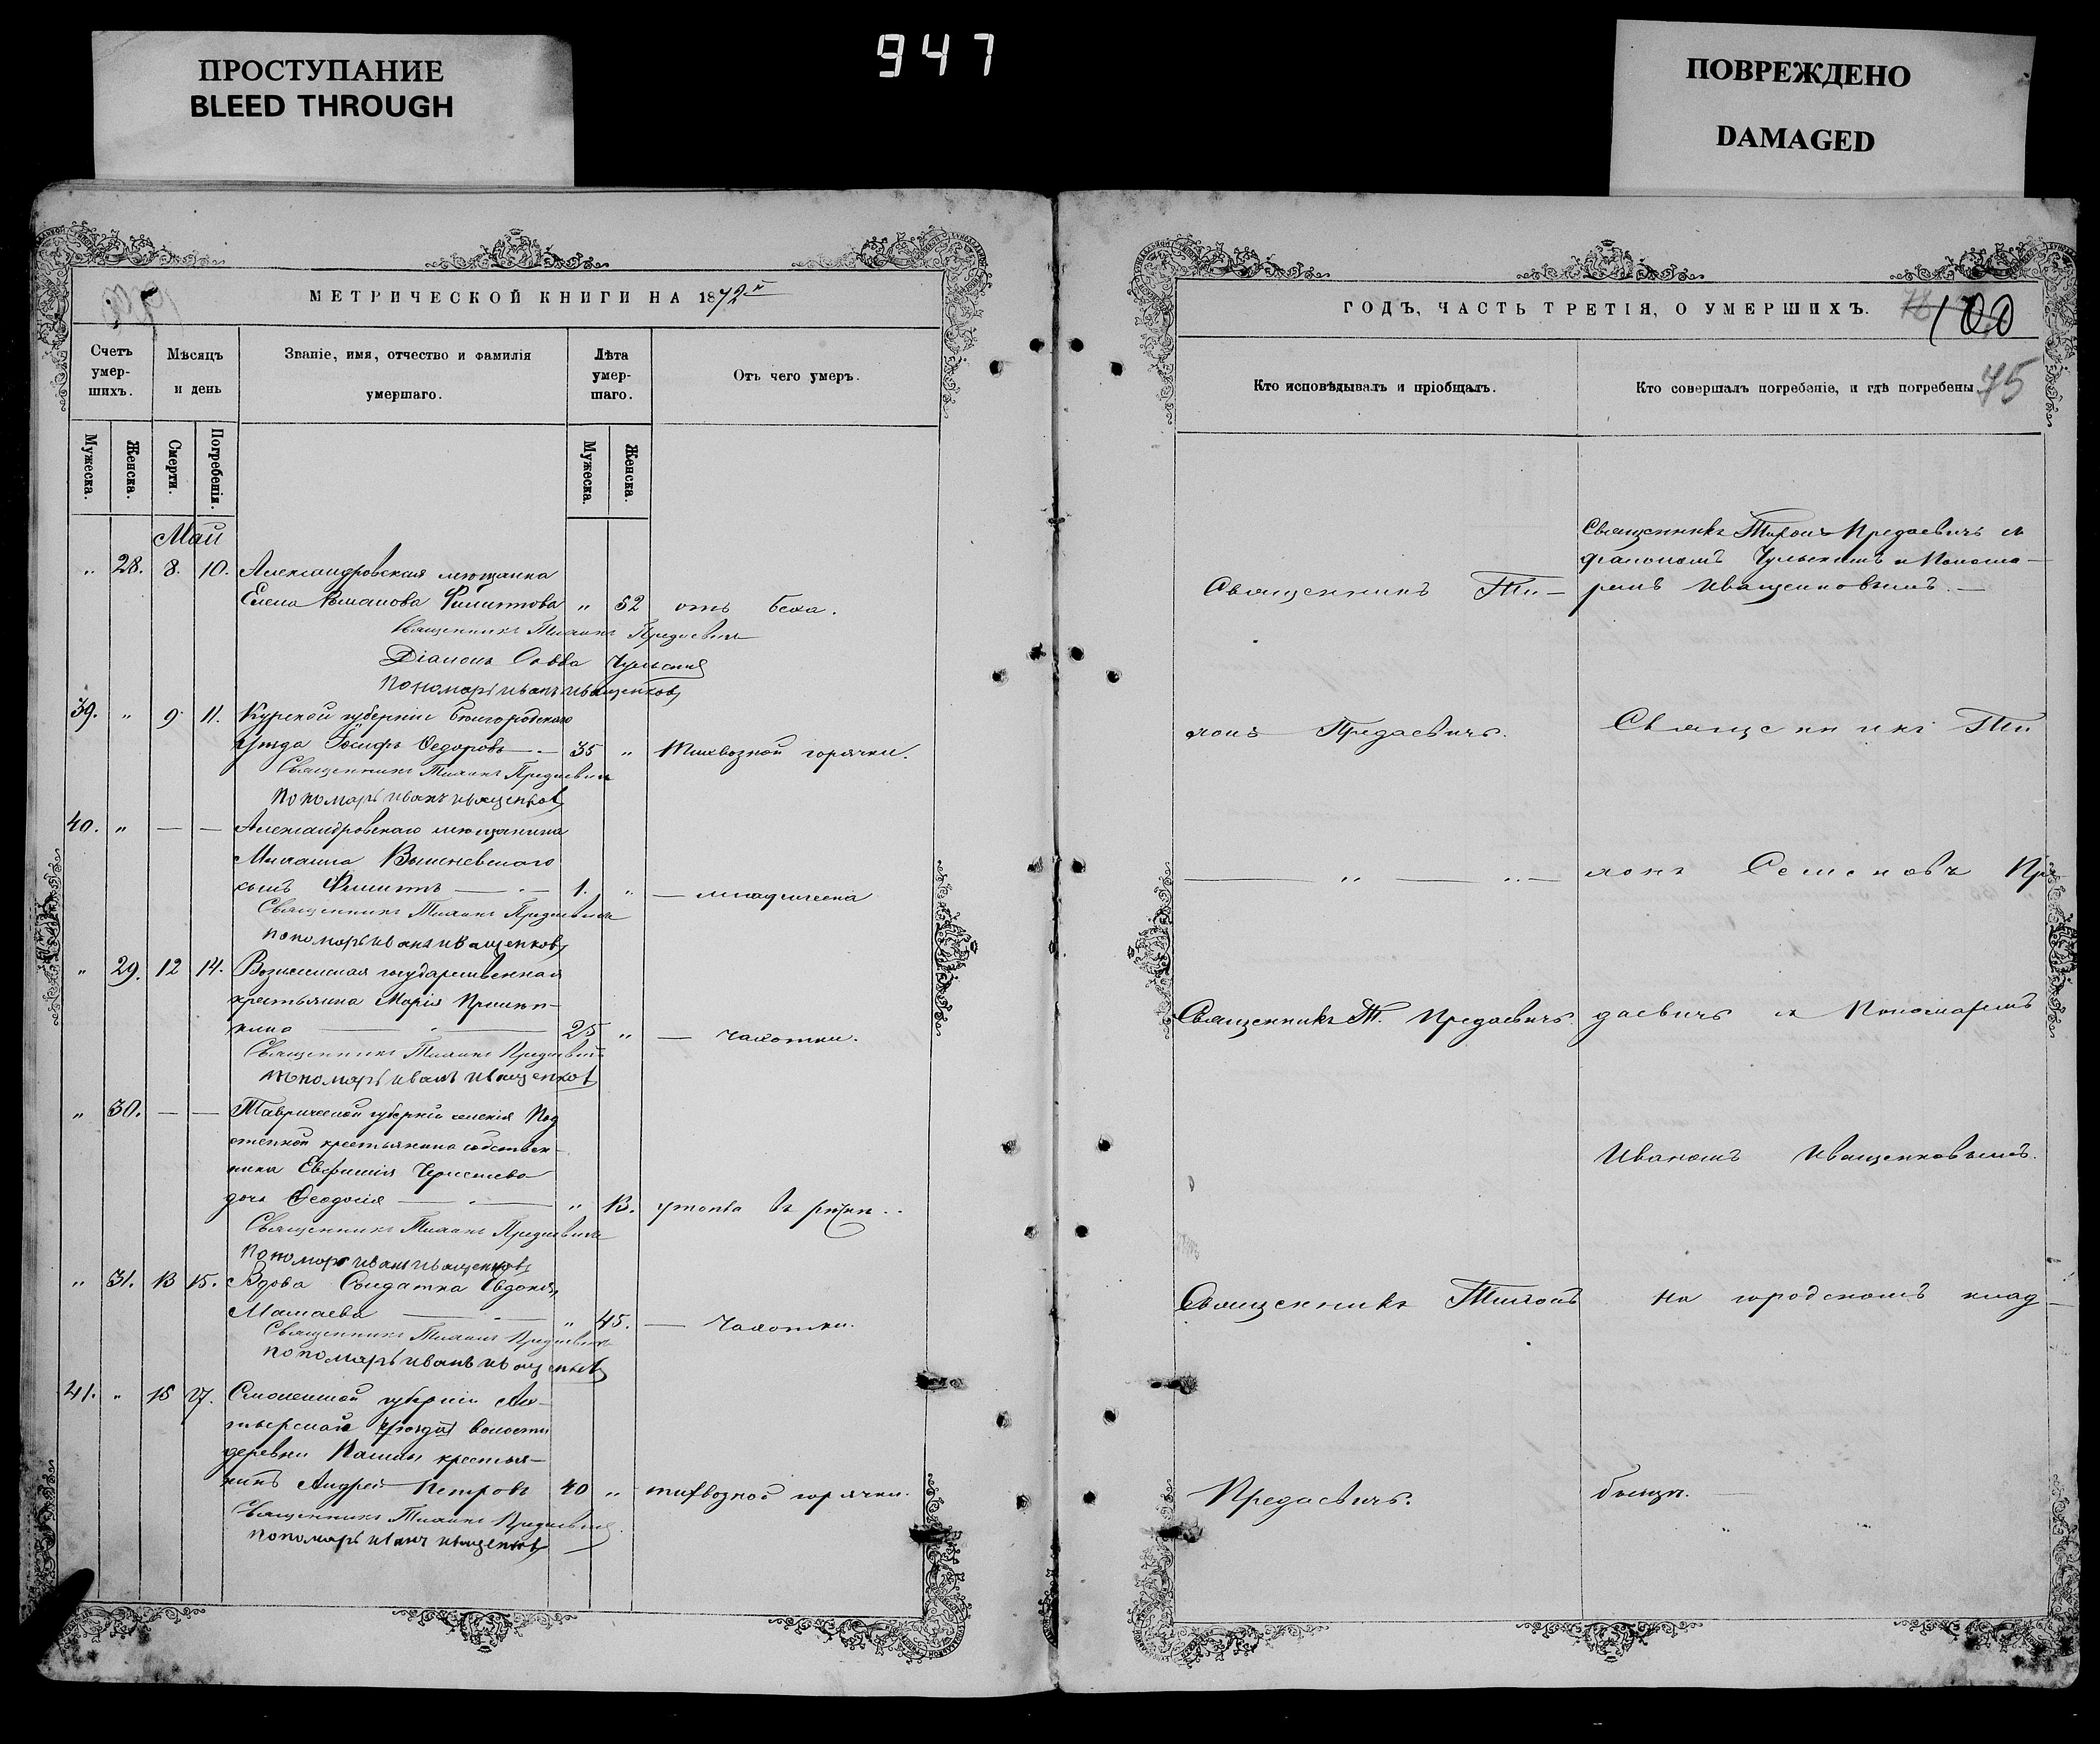 ПРОСТУПАНИЕ
BLEED THROUGH
947
ПОВРЕЖДЕНО
DAMAGED
МЕТРИЧЕСКОЙ КНИГИ НА 1872й
Счетъ умер-шихъ.
Мѣсяцъ и день
Званіе, имя, отчество и фамилія умершаго.
Лѣта умер-шаго.
Отъ чего умеръ.
Мужеска.
Женска.
Смерти.
Погребенія.
Мужеска.
Женска.
Май
„ 28. 8. 10. Александровская мѣщанка
Елена Романова Филиппова „ 52 отъ бока.
Священникъ Тихонъ Предаевичъ
Діаконъ Савва Чульскій
Пономарь Иванъ Иващенковъ
39. „ 9. 11. Курской губерніи Бѣлгородскаго
уѣзда Іосифъ Ѳедоровъ — 35 „ Тифозной горячки.
Священникъ Тихонъ Предаевичъ
Пономарь Иванъ Иващенковъ
40. „ — — Александровскаго мѣщанина
Михаила Вышневскаго
сынъ Филиппъ — 1. „ — младенческа
Священникъ Тихонъ Предаевичъ
Пономарь Иванъ Иващенковъ
„ 29. 12 14. государственная
крестьянка Марія
кина — 25 „ — чахотки.
Священникъ Тихонъ Предаевичъ
Пономарь Иванъ Иващенковъ
„ 30. — — Таврической губерніи селенія Под
степной крестьянина собствен-
ника Евфимія
дочь Ѳеодосія — „ 13. утопла въ рѣчкѣ..
Священникъ Тихонъ Предаевичъ
Пономарь Иванъ Иващенковъ
„ 31. 13 15. Вдова Солдатка Евдокія
Мамаева — „ 45. — Чахотки.
Священникъ Тихонъ Предаевичъ
Пономарь Иванъ Иващенковъ
41. „ 15 17. Смоленской губерніи
уѣзда волости
деревни крестья-
нинъ Андрей Петровъ 40 „ тифозной горячки.
Священникъ Тихонъ Предаевичъ
Пономарь Иванъ Иващенковъ
ГОДЪ, ЧАСТЬ ТРЕТІЯ, О УМЕРШИХЪ.
78 100
75
Кто исповѣдывалъ и пріобщалъ.
Кто совершалъ погребеніе, и гдѣ погребены
Священникъ Ти-
хонъ Предаевичъ.
— „ — „ —
Священникъ Т. Предаевичъ.
Священникъ Тихонъ
Предаевичъ.
Священникъ Тихонъ Предаевичъ съ
діакономъ Чульскимъ и Понома-
ремъ Иващенковымъ. —
Священникъ Ти
хонъ Семеновъ Пре
даевичъ съ Пономаремъ
Иваномъ Иващенковымъ.
на городскомъ клад-
бищѣ. —